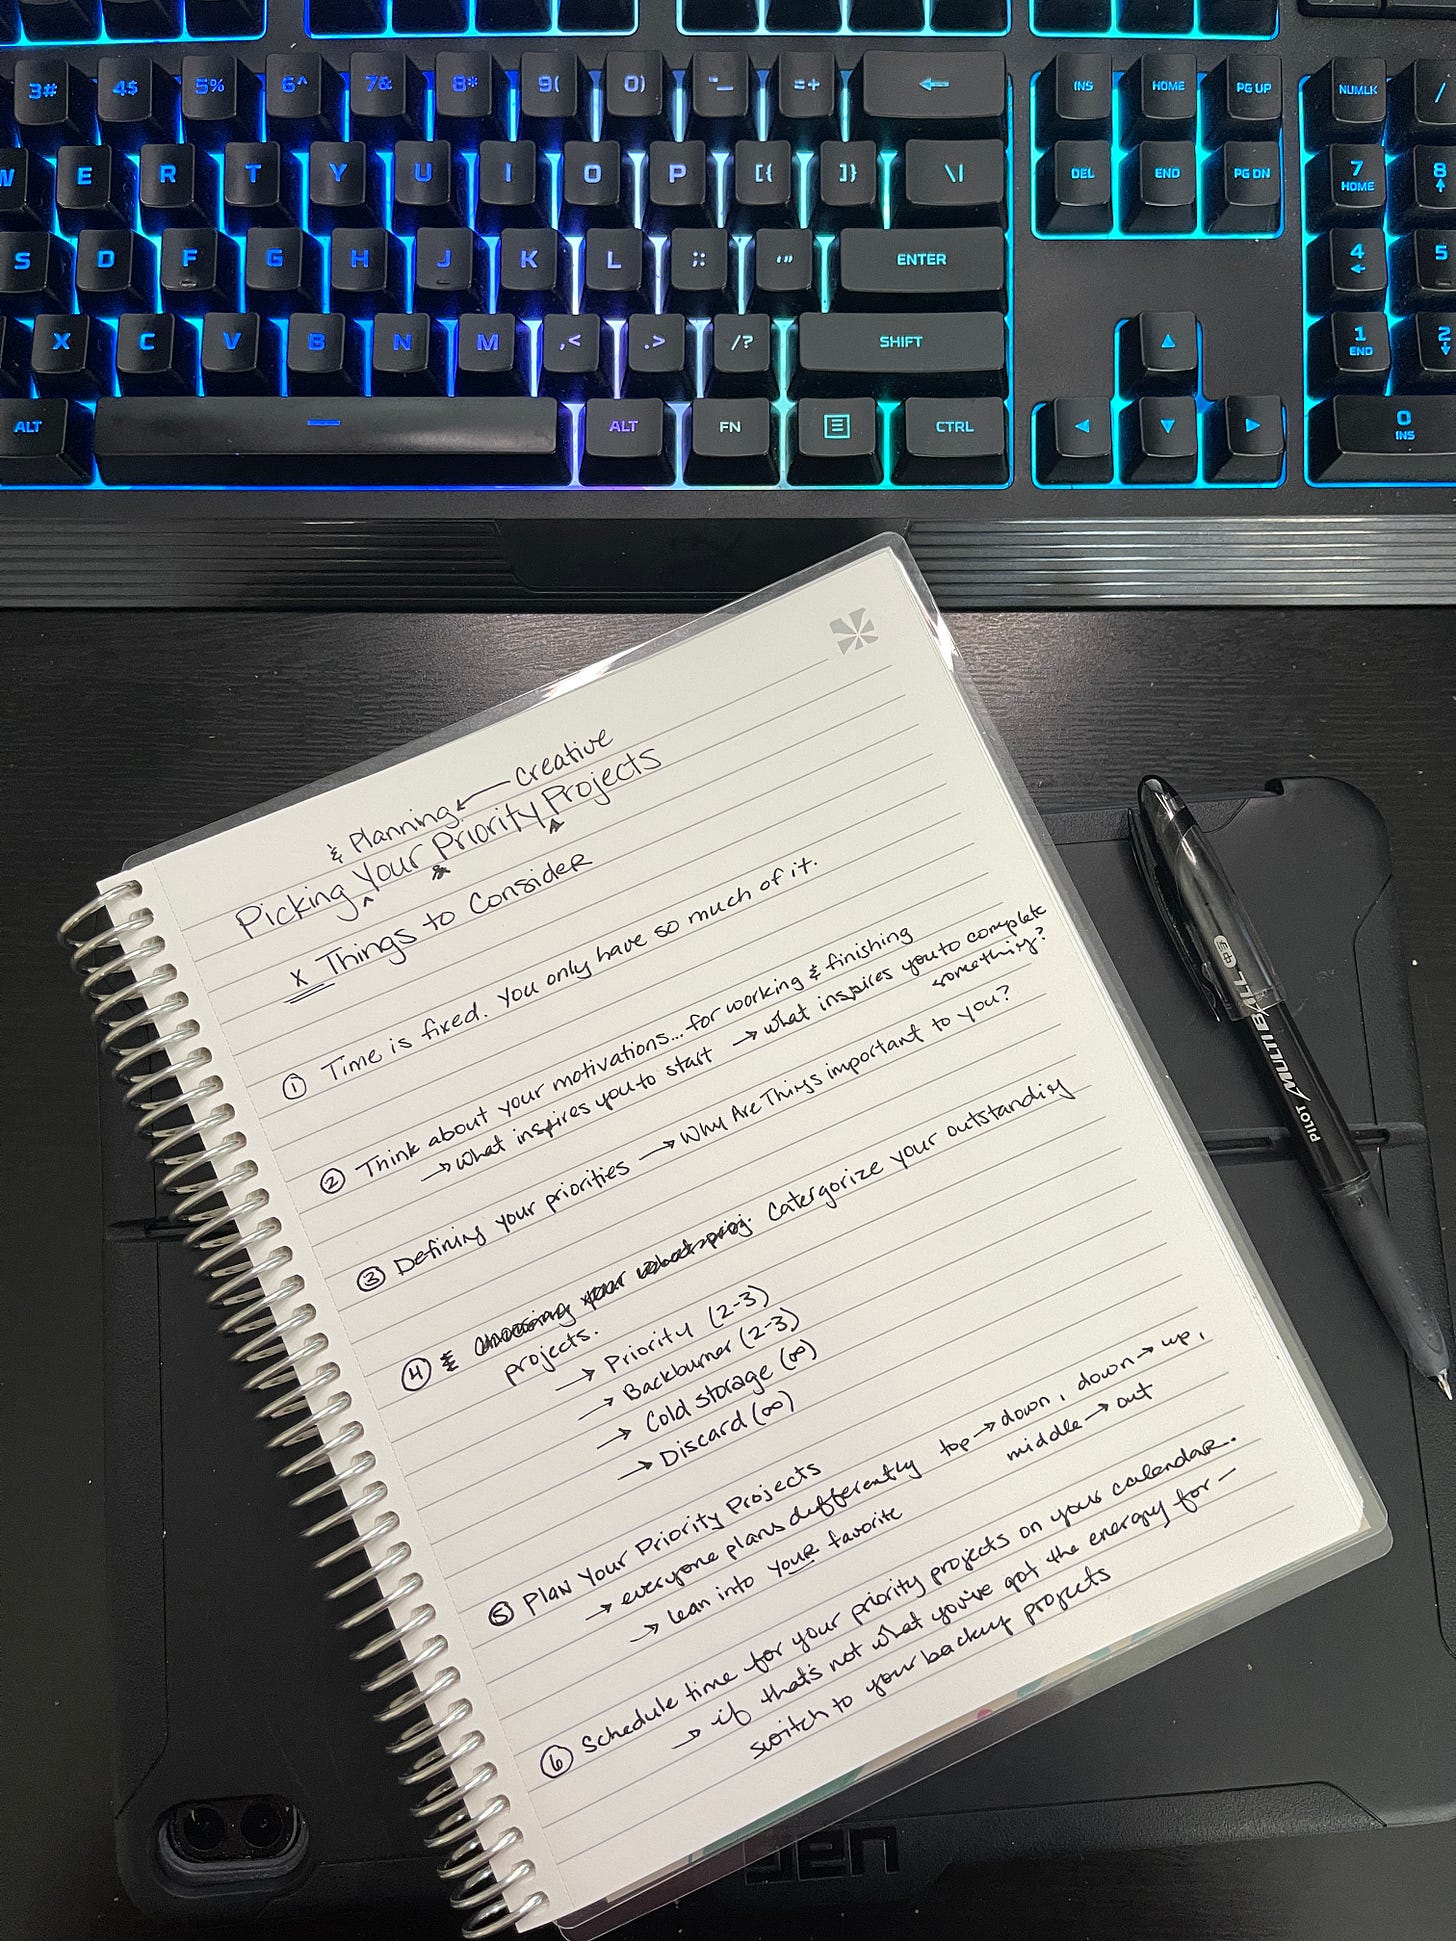 3# 4$ 5% 6^ 7& 8* 9( 0) -_ =+ ← INS HOME PG UP NUMLK /
W E R T Y U I O P [{ ]} \| DEL END PG DN 7 HOME 8
S D F G H J K L ;: '" ENTER 4 5
X C V B N M ,< .> /? SHIFT 1 END 2
ALT ALT FN CTRL 0 INS
& Planning ← Creative
Picking Your Priority Projects
x Things to Consider
① Time is fixed. You only have so much of it.
② Think about your motivations... for working & finishing
→ what inspires you to start → what inspires you to complete
something?
③ Defining your priorities → Why Are Things important to you?
④ Catergorize your outstanding
projects.
→ Priority (2-3)
→ Backburner (2-3)
→ Cold storage (∞)
→ Discard (∞)
⑤ Plan Your Priority Projects
→ everyone plans dufferently top → down, down → up,
middle → out
→ lean into your favorite
⑥ Schedule time for your priority projects on your calendar.
→ if that's not what you've got the energy for —
switch to your backup projects
PILOT MULTI BALL